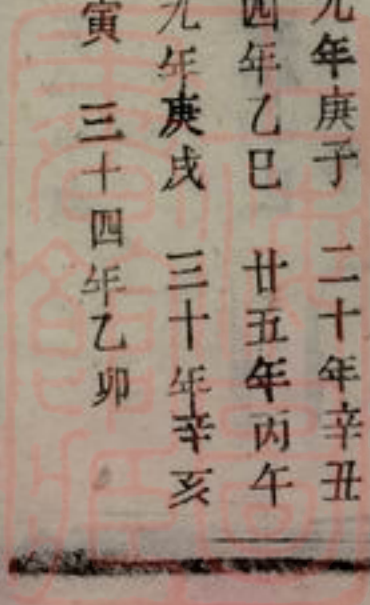 九年庚子 二十年辛丑
四年乙巳 廿五年丙午
九年庚戌 三十年辛亥
寅 三十四年乙卯